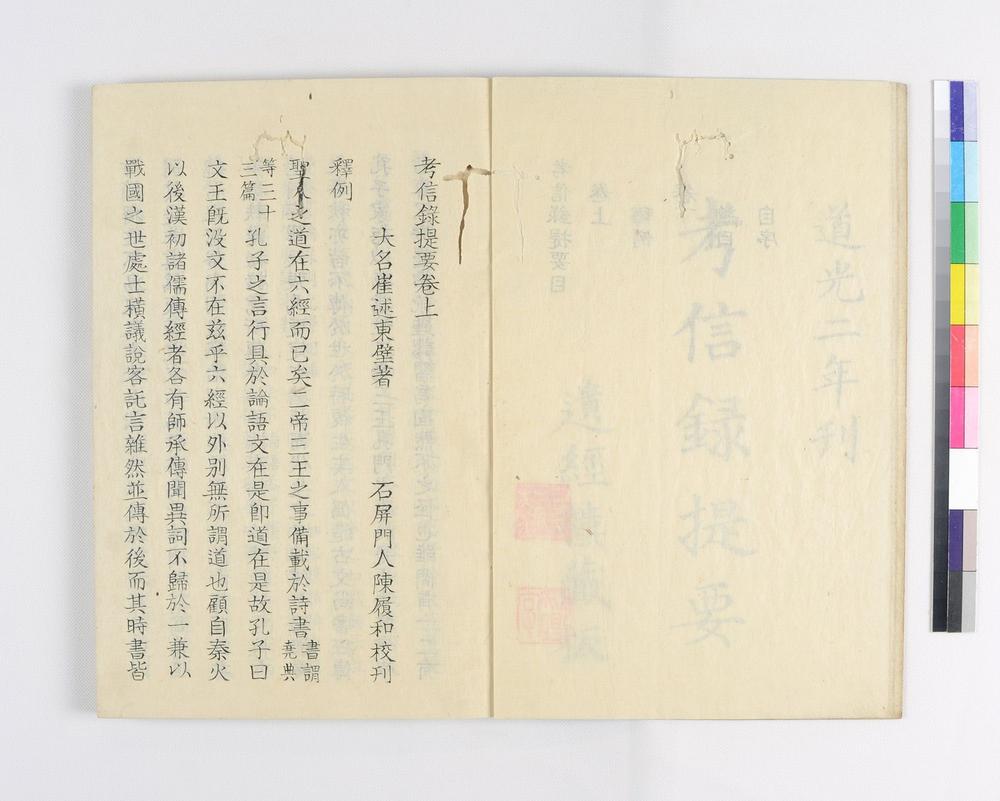 道光二年刊
自序
考信錄提要
釋例
卷上
遺經樓藏板
考信錄提要目
考信錄提要卷上
大名崔述東壁著　石屏門人陳履和校刊
釋例
聖人之道在六經而已矣二帝三王之事備載於詩書書謂堯典
等三十三篇孔子之言行具於論語文在是卽道在是故孔子曰
文王旣没文不在茲乎六經以外別無所謂道也顧自秦火
以後漢初諸儒傳經者各有師承傳聞異詞不歸於一兼以
戰國之世處士橫議說客託言雜然並傳於後而其時書皆